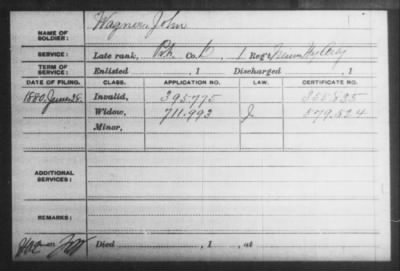 NAME OF
SOLDIER:
Wagner, John
SERVICE:
Late rank, Co. 1 Reg't
TERM OF
SERVICE:
Enlisted , 1 Discharged , 1
DATE OF FILING. CLASS. APPLICATION NO. LAW. CERTIFICATE NO.
1880, June 28. Invalid, 395.775
Widow, 711.993 579.524
Minor,
ADDITIONAL
SERVICES:
REMARKS:
Died , 1 , at